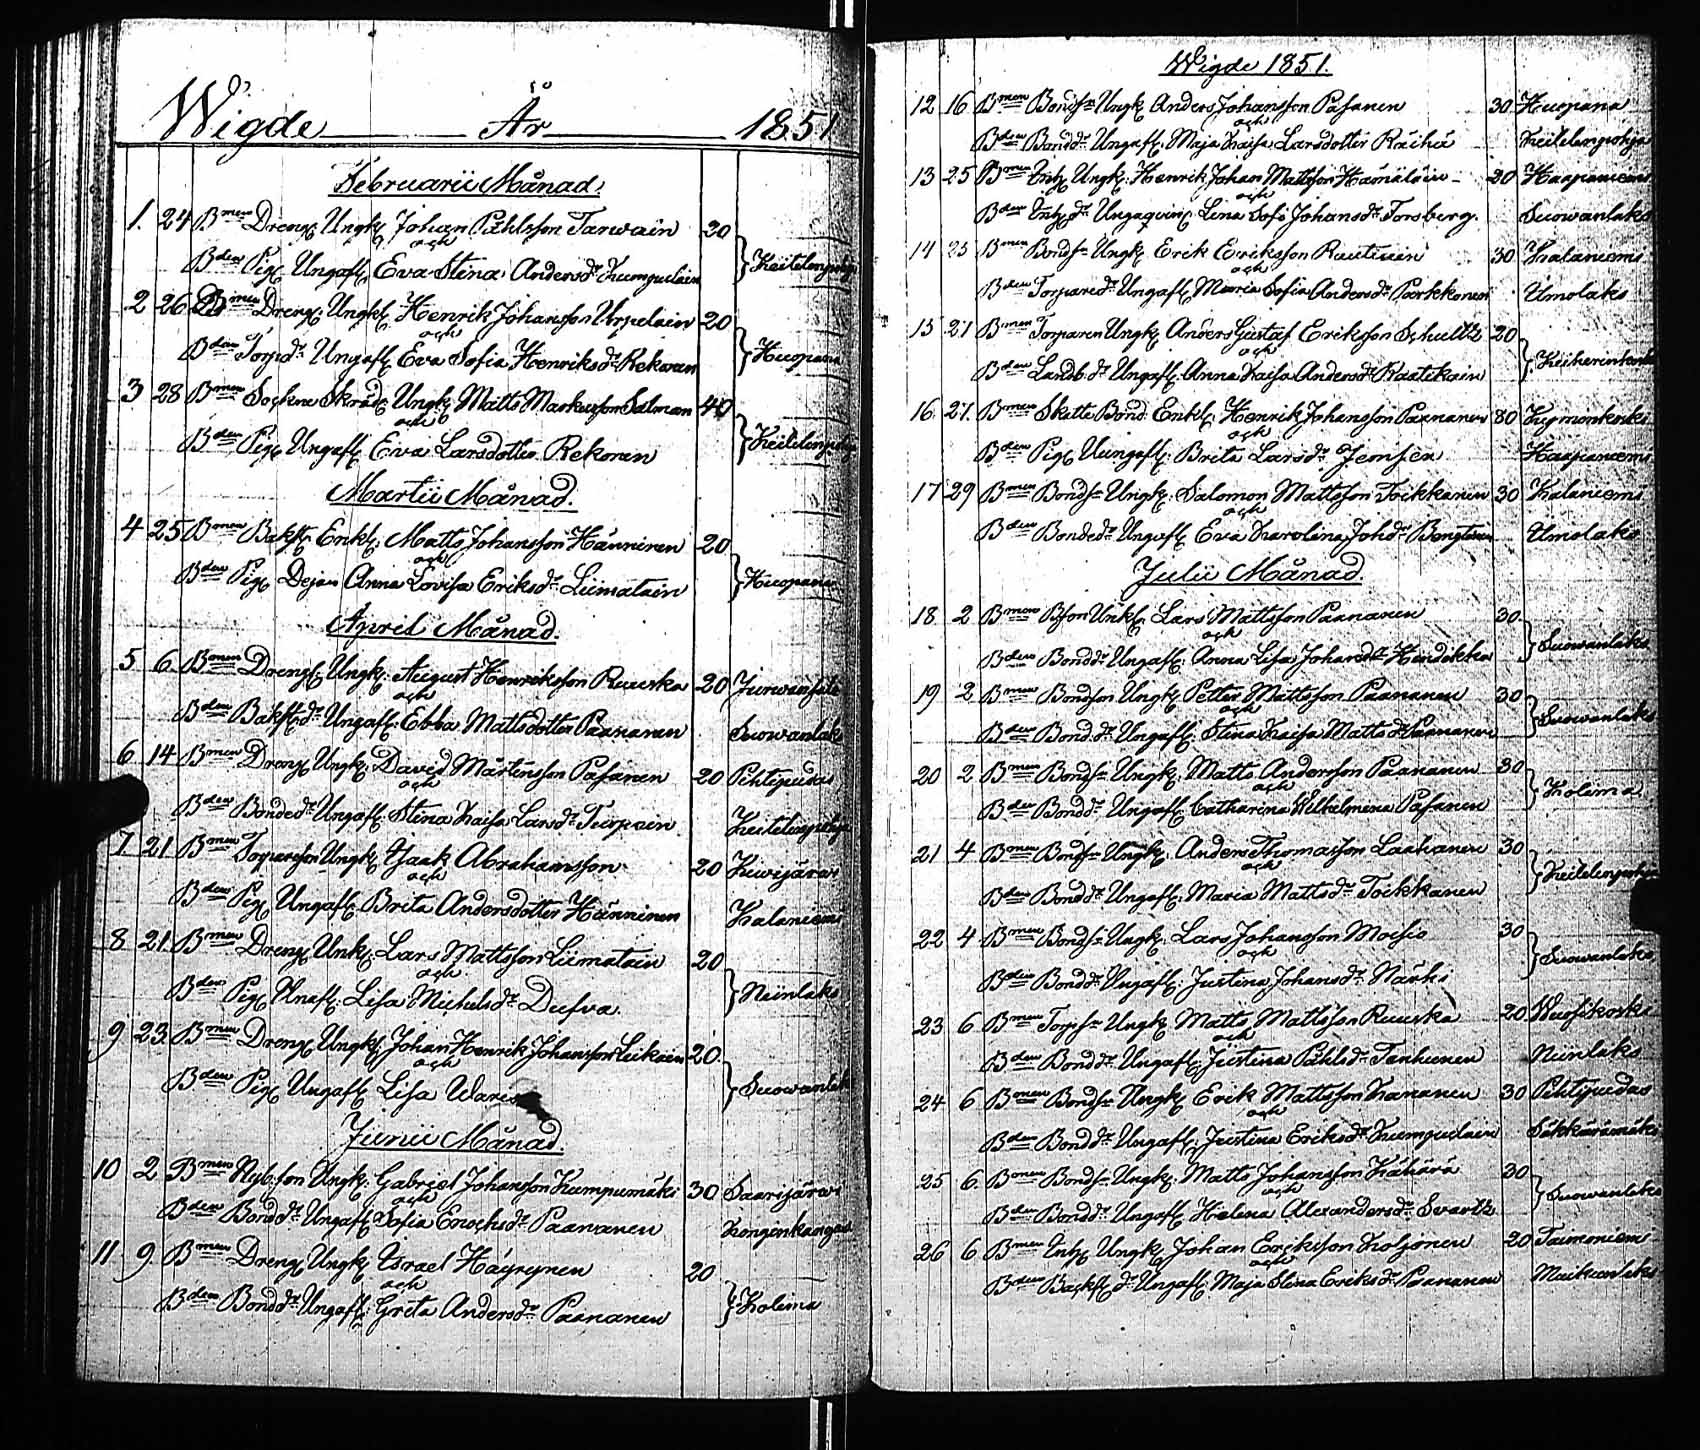 Wigde År 1851
Februarii Månad.
1. 24 Bmen Dreng. Ungk. Johan Påhlsson Tarwain 20
och
Bden Pig. Ungafl. Eva Stina Andersdr Kumpulain Keitelenpohja
2 26 Bmen Dreng. Ungk. Henrik Johansson Urpelain 20
och
Bden Torpdr Ungafl. Eva Sofia Henriksdr Rekonen Huopana
3 28 Bmen Sockne Skräd. Ungk. Matts Markusson Salman 40
och
Bden Pig. Ungafl. Eva Larsdotter Rekonen Keitelenpohja
Martii Månad.
4 25 Bmen Bakst. Enkl. Matts Johansson Hänninen 20
och
Bden Pig. Dejan Anna Lovisa Eriksdr Liimatain Huopana
April Månad.
5 6 Bmen Dreng. Ungk. August Henriksson Ruuska 20
och
Bden Bakst.dr Ungafl. Ebba Mattsdotter Paananen Suowanlaks
6 14 Bmen Dreng. Ungk. David Mårtensson Pasanen 20 Pihtipudas
och
Bden Bondedr Ungafl. Stina Kaisa Larsdr Turpain Keitelenpohja
7 21 Bmen Torparson Ungk. Isaak Abrahamsson 20 Kiwijärwi
och
Bden Pig. Ungafl. Brita Andersdotter Hänninen Kalaniemi
8 21 Bmen Dreng. Unk. Lars Mattsson Liimatain 20
och
Bden Pig. Unafl. Lisa Michelsdr Dufva Niinlaks
9 23. Bmen Dreng. Ungk. Johan Henrik Johansson Leikain 20.
och
Bden Pig. Ungafl. Lisa Suowanlaks
Junii Månad.
10 2 Bmen Nyb.son Ungk. Gabriel Johansson Kumpumäki 30 Saarijärwi
och
Bden Bonddr Ungafl. Sofia Enochsdr Paananen Kongenkangas
11 9. Bmen Dreng. Ungk. Israel Häyrynen 20
och
Bden Bonddr Ungafl. Greta Andersdr Paananen Kolima
Wigde 1851.
12 16 Bmen Bondsn Ungk. Anders Johansson Pasanen 30 Huopana
och
Bden Bonddr Ungafl. Maja Kaisa Larsdotter Räihä Keitelenpohja
13 25 Bmen Inh. Ungk. Henrik Johan Mattsson Hämäläin 20 Haapaniemi
och
Bden Inh.dr Ungaqvin. Lena Sofi Johansdr Forsberg. Suowanlaks
14 25 Bmen Bondsn Ungk. Erik Eriksson Rautiain 30 Kalaniemi
och
Bden Torparedr Ungafl. Maria Sofia Andersdr Porkkonen Umolaks
15 27 Bmen Torparen Ungk. Anders Gustaf Eriksson Schultz 20
och
Bden Landb.dr Ungafl. Anna Kaisa Andersdr Raatikain
16. 27. Bmen Skatte Bond. Enkl. Henrik Johansson Paananen 80
och
Bden Pig. Ungafl. Brita Larsdr Jemsen Haapaniemi
17 29 Bmen Bondsn Ungk. Salomon Mattsson Toikkanen 30 Kalaniemi
och
Bden Bondedr Ungafl. Eva Karolina Johdr Umolaks
Julii Månad.
18. 2 Bmen Bson Unkl. Lars Mattsson Paananen 30
och
Bden Bonddr Ungafl. Anna Lisa Johansdr Hindikka Suowanlaks
19 2 Bmen Bondson Ungk. Petter Mattsson Paananen 30
och
Bden Bonddr Ungafl. Stina Kaisa Mattsdr Paananen Suowanlaks
20 2 Bmen Bondsn Ungk. Matts Andersson Paananen 30
och
Bden Bonddr Ungafl. Catharina Wilhelmina Pasanen Kolima
21 4 Bmen Bondsn Ungk. Anders Thomasson Laahanen 30
och
Bden Bonddr Ungafl. Maria Mattsdr Toikkanen Keitelenpohja
22 4 Bmen Bondsn Ungk. Lars Johansson Moisio 30
och
Bden Bonddr Ungafl. Justina Johansdr Närhi Suowanlaks
23 6 Bmen Torpsn Ungk. Matts Mattsson Ruuska 20 Wuosikoski
och
Bden Bonddr Ungafl. Justina Påhlsdr Tanhunen Niinlaks
24 6 Bmen Bondsn Ungk. Erik Mattsson Kananen 30 Pihtipudas
och
Bden Bonddr Ungafl. Justina Eriksdr Kumpulain Säkkärämäki
25 6. Bmen Bondsn Ungk. Matts Johansson Kähärä 30
och
Bden Bonddr Ungafl. Helena Alexandersdr Svartz Suowanlaks
26 6 Bmen Inh. Ungk. Johan Eriksson Koljonen 20 Taimoniemi
och
Bden Backst. dr Ungafl. Maja Stina Eriksdr Paananen